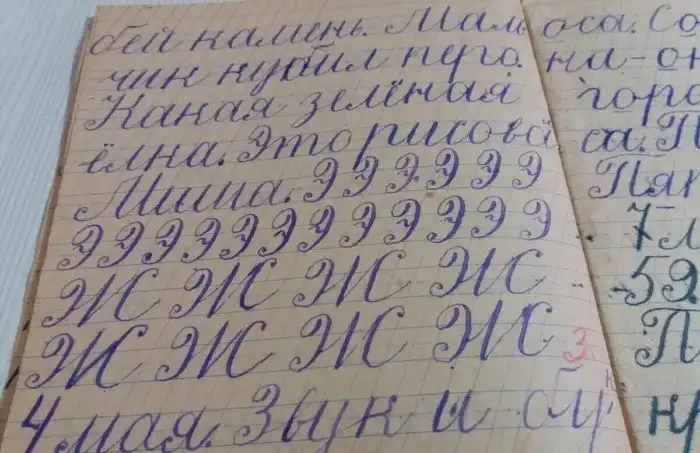 бей камень. Маль
чик кубил перо.
Какая зелёная
ёлка. Это рисова
Миша. Э Э Э Э Э Э
Э Э Э Э Э Э Э Э Э Э Э
Ж Ж Ж Ж
Ж Ж Ж Ж 3
4 мая. Звук и бу
оса. Со
на-он
горо
са. П
Пян
7 л
59
П
кр